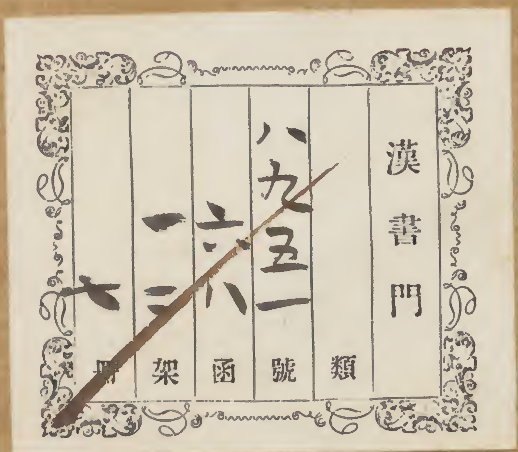 漢書門
類
八九五一號
六八函
一二架
七冊